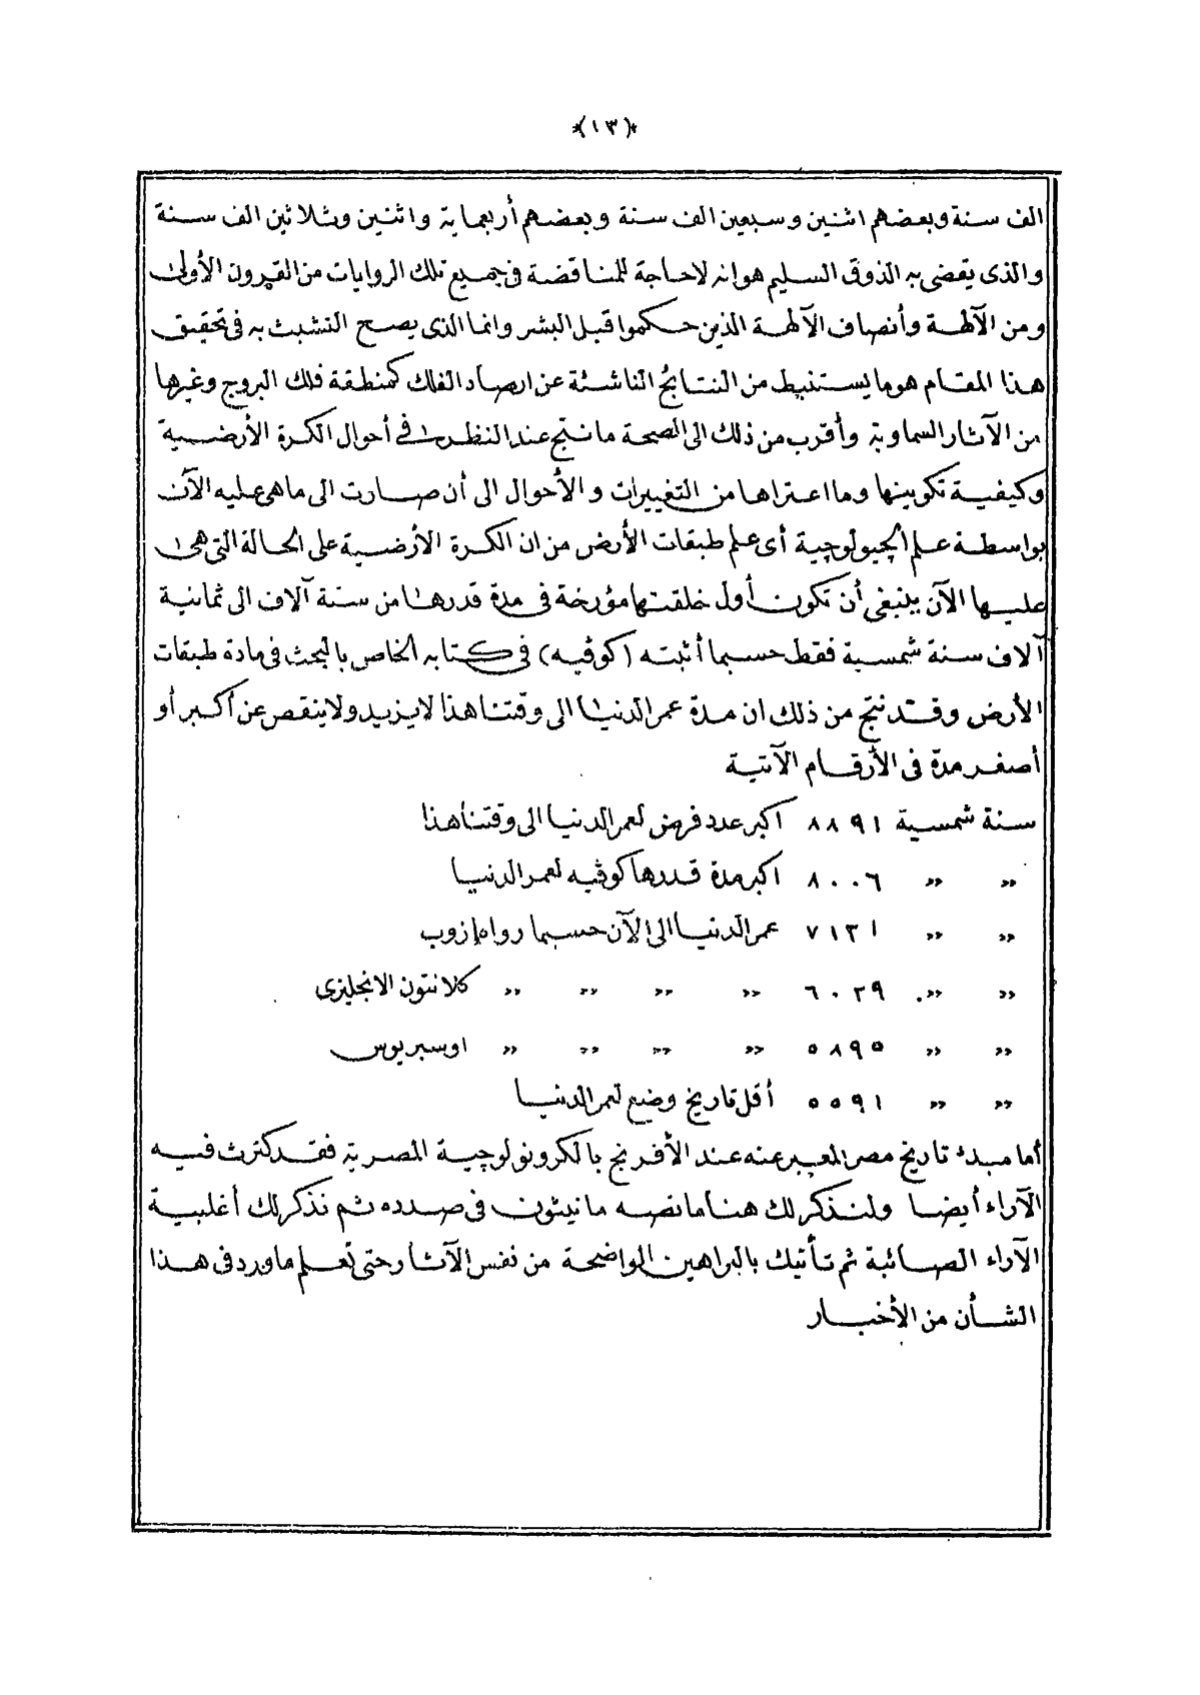 ﴿١٣﴾
الف سنة وبعضهم اثنين وسبعين الف سنة وبعضهم أربعماية واثنين وثلاثين الف سنة
والذى يقضى به الذوق السليم هو انه لاحاجة للمناقضة فى جميع تلك الروايات من القرون الأولى
ومن الآلهة وأنصاف الآلهة الذين حكموا قبل البشر وانما الذى يصح التشبث به فى تحقيق
هذا المقام هو ما يستنبط من النتايج الناشئة عن ارصاد الفلك كمنطقة فلك البروج وغيرها
من الآثار السماوية وأقرب من ذلك الى الصحة ما نتج عند النظر فى أحوال الكرة الأرضية
وكيفية تكوينها وما اعتراها من التغييرات والأحوال الى أن صارت الى ماهى عليه الآن
بواسطة علم الجيولوجية أى علم طبقات الأرض من ان الكرة الأرضية على الحالة التى هى
عليها الآن ينبغى أن تكون أول خلقتها مؤرخة فى مدة قدرها من ستة آلاف الى ثمانية
آلاف سنة شمسية فقط حسبما أثبته (كوڤيه) فى كتابه الخاص بالبحث فى مادة طبقات
الأرض وقد نتج من ذلك ان مدة عمر الدنيا الى وقتنا هذا لايزيد ولاينقص عن أكبر أو
أصغر مدة فى الأرقام الآتية
سنة شمسية ٨٨٩١ اكبر عدد فرض لعمر الدنيا الى وقتنا هذا
„ „ ٨٠٠٦ اكبر مدة قدرها كوڤيه لعمر الدنيا
„ „ ٧١٢١ عمر الدنيا الى الآن حسبما رواه ازوب
„ „ ٦٠٢٩ „ „ „ „ كلانتون الانجليزى
„ „ ٥٨٩٥ „ „ „ „ اوسيريوس
„ „ ٥٥٩١ أقل تاريخ وضع لعمر الدنيا
أما مبدء تاريخ مصر المعبر عنه عند الأفرنج بالكرونولوجية المصرية فقد كثرت فيه
الآراء أيضا ولنذكر لك هنا ما نصه مانيثون فى صدده ثم نذكر لك أغلبية
الآراء الصائبة ثم تأتيك بالبراهين الواضحة من نفس الآثار حتى تعلم ماورد فى هذا
الشأن من الأخبار